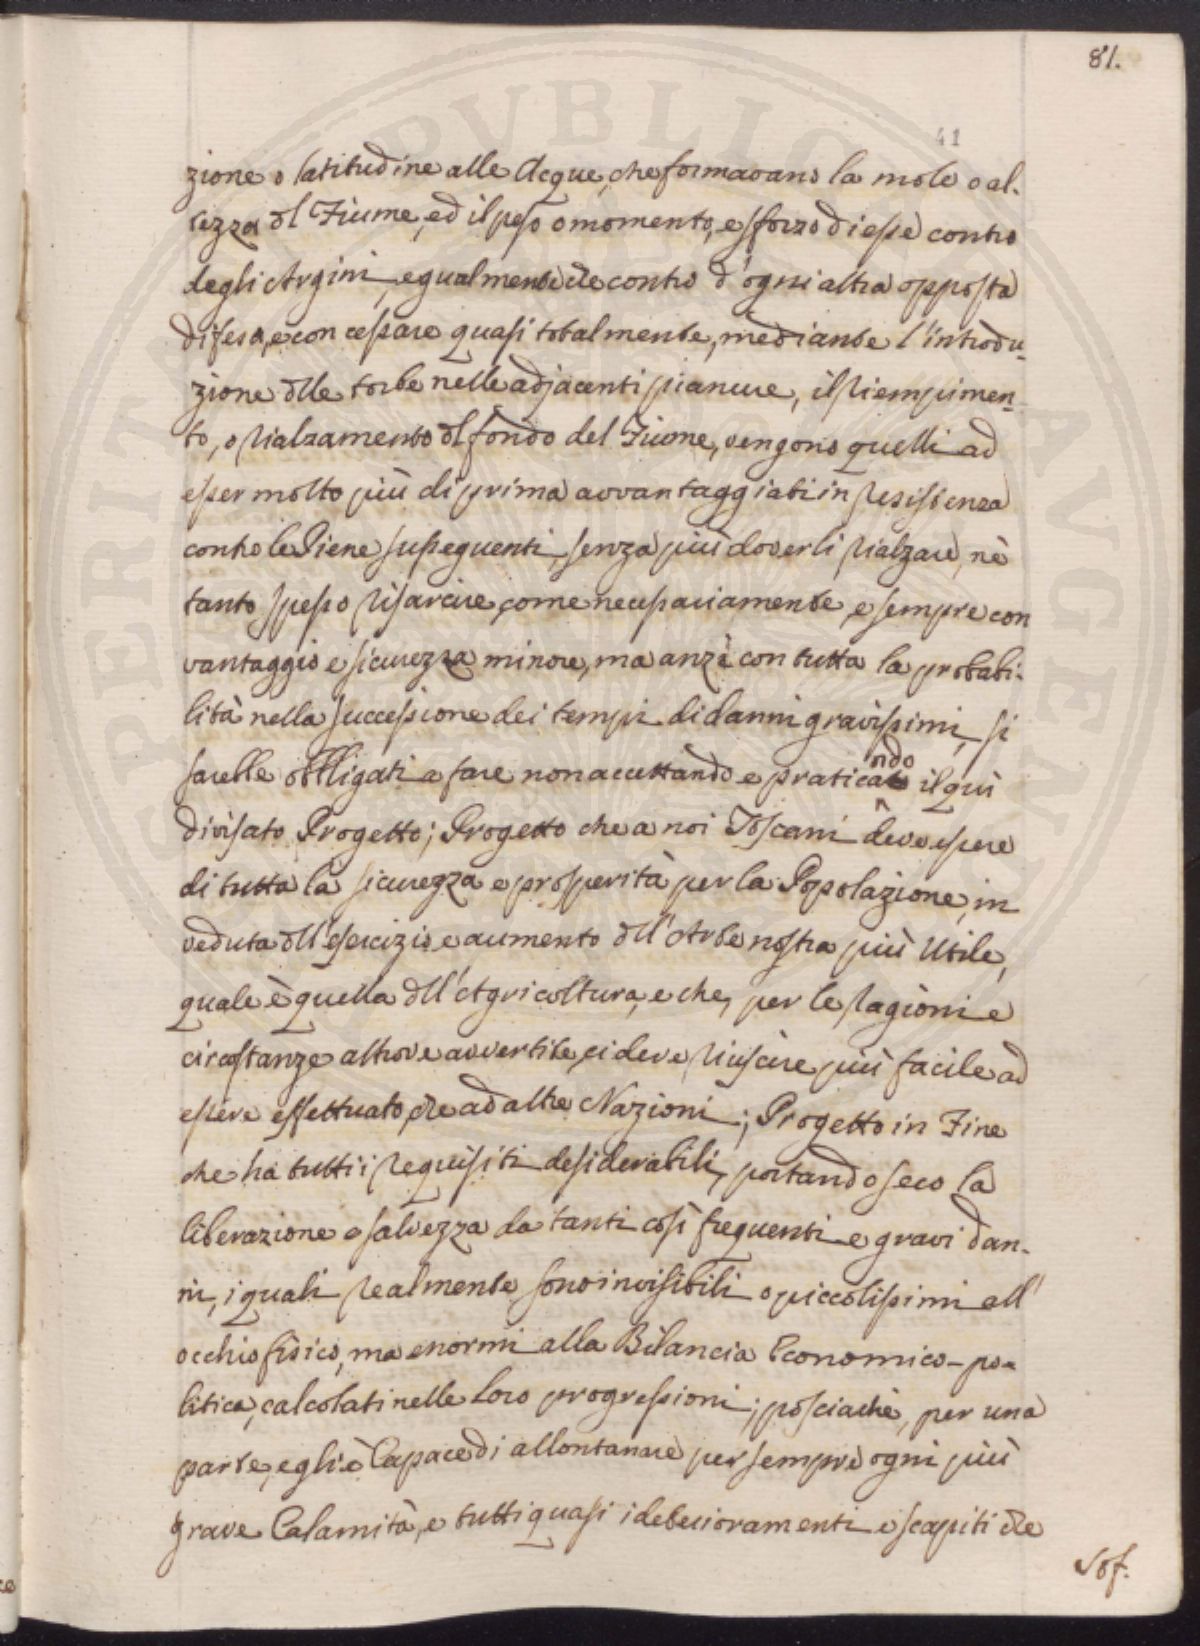 81.
41
zione o latitudine alle Acque, che formavano la mole o al-
tezza dl Fiume, ed il peso o momento, e sforzo di esse contro
degli Argini, egualmente che contro d'ogni altra opposta
difesa, e con cessare quasi totalmente, mediante l'introdu-
zione dlle torbe nelle adjacenti pianure, il riempimen-
to, o rialzamento dl fondo del Fiume, vengono quelli ad
esser molto più di prima avvantaggiati in resistenza
contro le Piene susseguenti, senza più doverli rialzare, nè
tanto spesso risarcire, come necessariamente, e sempre con
vantaggio e sicurezza minore, ma anzi con tutta la probabi-
lità nella successione dei tempi di danni gravissimi, si
sarebbe obbligati a fare non accettando e praticando il quì
divisato Progetto; Progetto che a noi Toscani deve essere
di tutta la sicurezza e prosperità per la Popolazione, in
veduta dll'esercizio e aumento dll'Arte nostra più Utile,
quale è quella dll'Agricoltura, e che, per le ragioni e
circostanze altrove avvertite, ci deve riuscire più facile ad
essere effettuato, che ad altre Nazioni; Progetto in Fine
che ha tutti i requisiti desiderabili, portando seco la
liberazione e salvezza da tanti così frequenti e gravi dan-
ni, i quali realmente sono invisibili o piccolissimi all'
occhio fisico, ma enormi alla Bilancia Economico-po-
litica, calcolati nelle loro progressioni; posciachè, per una
parte, egli è Capace di allontanare per sempre ogni più
grave Calamità, e tutti quasi i deterioramenti e scapiti che
Sof.